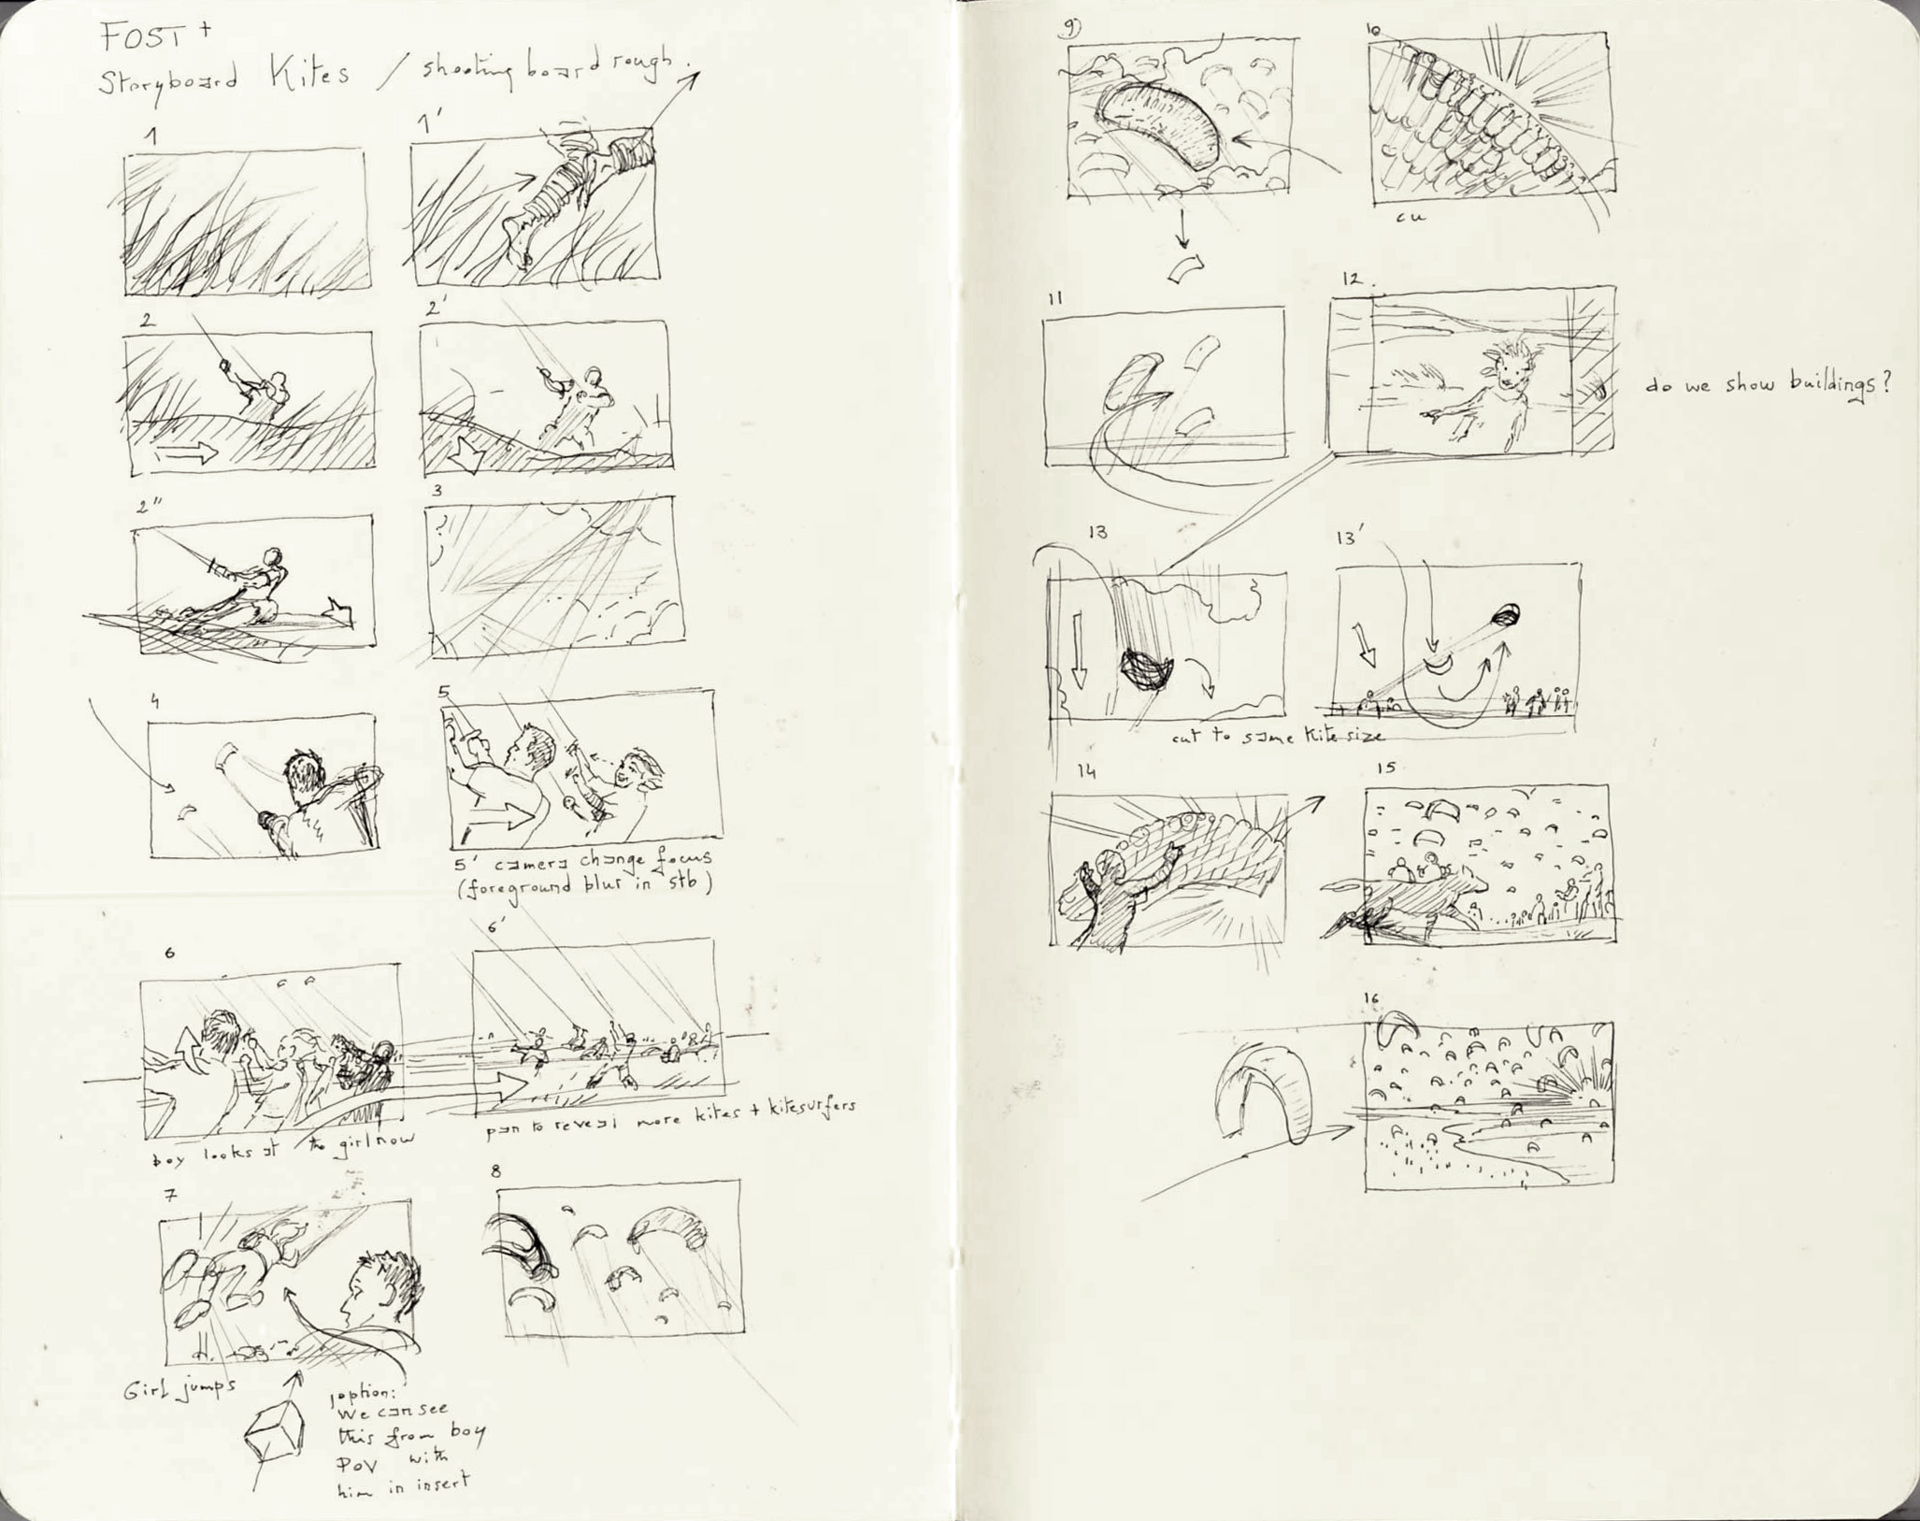 FOST +
Storyboard Kites / shooting board rough.
1
1'
2
2'
2"
3
4
5
5' camera change focus
(foreground blur in stb)
6
6'
boy looks at the girl now
pan to reveal more kites + kitesurfers
7
8
Girl jumps
option:
We can see
this from boy
POV with
him in insert
9)
10
cu
11
12.
do we show buildings?
13
13'
cut to same kite size
14
15
16